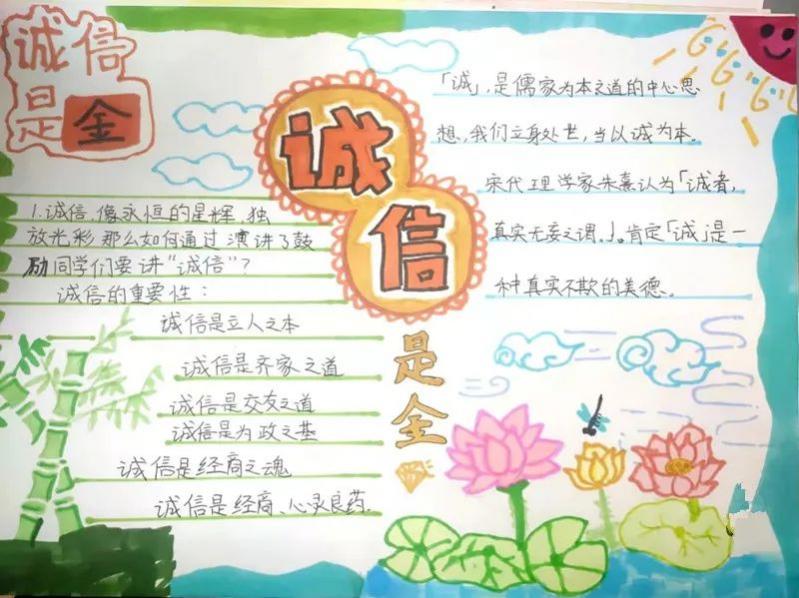 诚信
是金
诚信
是金
1.诚信,像永恒的星辉,独
放光彩,那么如何通过演讲了鼓
励同学们要讲“诚信”?
诚信的重要性:
诚信是立人之本
诚信是齐家之道
诚信是交友之道
诚信是为政之基
诚信是经商之魂
诚信是经商、心灵良药.
「诚」,是儒家为本之道的中心思
想,我们立身处世,当以诚为本.
宋代理学家朱熹认为「诚者,
真实无妄之谓.」。肯定「诚」是一
种真实不欺的美德。